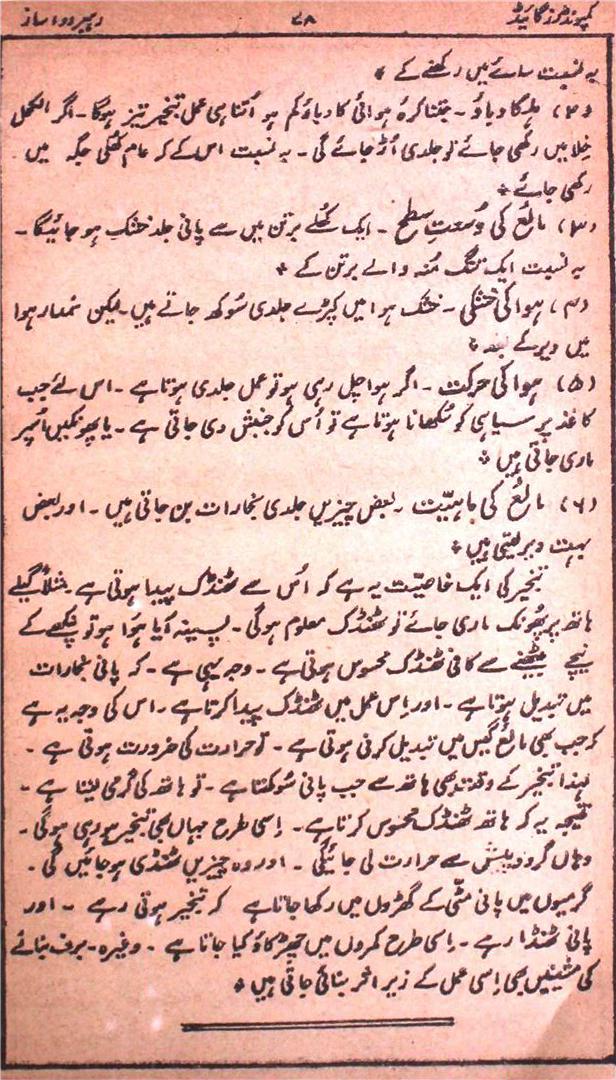 کمپونڈرز گائیڈ ۷۸ رہبر دوا ساز
بہ نسبت سائے میں رکھنے کے *
(۲) ہلکا دباؤ ۔ جتنا کرہ ہوائی کا دباؤ کم ہو اُتنا ہی عمل تبخیر تیز ہوگا ۔ اگر الکحل
خلا میں رکھی جائے تو جلدی اُڑ جائے گی ۔ بہ نسبت اس کے کہ عام کُھلی جگہ میں
رکھی جائے *
(۳) مائع کی وُسعتِ سطح ۔ ایک کُھلے برتن میں سے پانی جلد خشک ہو جائیگا ۔
بہ نسبت ایک تنگ مُنہ والے برتن کے *
(۴) ہوا کی خشکی ۔ خشک ہوا میں کپڑے جلدی سُوکھ جاتے ہیں ۔ لیکن نمدار ہوا
میں دیر کے بعد *
(۵) ہوا کی حرکت ۔ اگر ہوا چل رہی ہو تو عمل جلدی ہوتا ہے ۔ اس لئے جب
کاغذ پر سیاہی کو سُکھانا ہوتا ہے تو اُس کو جنبش دی جاتی ہے ۔ یا پھونکیں اُسپر
ماری جاتی ہیں *
(۶) مائع کی ماہیّت ۔ بعض چیزیں جلدی بخارات بن جاتی ہیں ۔ اور بعض
بہت دیر لیتی ہیں *
تبخیر کی ایک خاصیّت یہ ہے کہ اُس سے ٹھنڈک پیدا ہوتی ہے مثلاً گیلے
ہاتھ پر پُھونک ماری جائے تو ٹھنڈک معلوم ہوگی ۔ پسینہ آیا ہُوا ہو تو پنکھے کے
نیچے بیٹھنے سے کافی ٹھنڈک محسوس ہوتی ہے ۔ وجہ یہی ہے ۔ کہ پانی بخارات
میں تبدیل ہوتا ہے ۔ اور اِس عمل میں ٹھنڈک پیدا کرتا ہے ۔ اس کی وجہ یہ ہے
کہ جب بھی مائع گیس میں تبدیل کرنی ہوتی ہے ۔ تو حرارت کی ضرورت ہوتی ہے ۔
لہٰذا تبخیر کے وقت بھی ہاتھ سے جب پانی سُوکھتا ہے ۔ تو ہاتھ کی گرمی لیتا ہے ۔
نتیجہ یہ کہ ہاتھ ٹھنڈک محسوس کرتا ہے ۔ اِسی طرح جہاں بھی تبخیر ہو رہی ہوگی ۔
وہاں گرد و پیش سے حرارت لی جائیگی ۔ اور وہ چیزیں ٹھنڈی ہو جائیں گی ۔
گرمیوں میں پانی مٹّی کے گھڑوں میں رکھا جاتا ہے کہ تبخیر ہوتی رہے ۔ اور
پانی ٹھنڈا رہے ۔ اِسی طرح کمروں میں چھڑکاؤ کیا جاتا ہے ۔ وغیرہ ۔ برف بنانے
کی مشینیں بھی اِسی عمل کے زیر اثر بنائی جاتی ہیں *